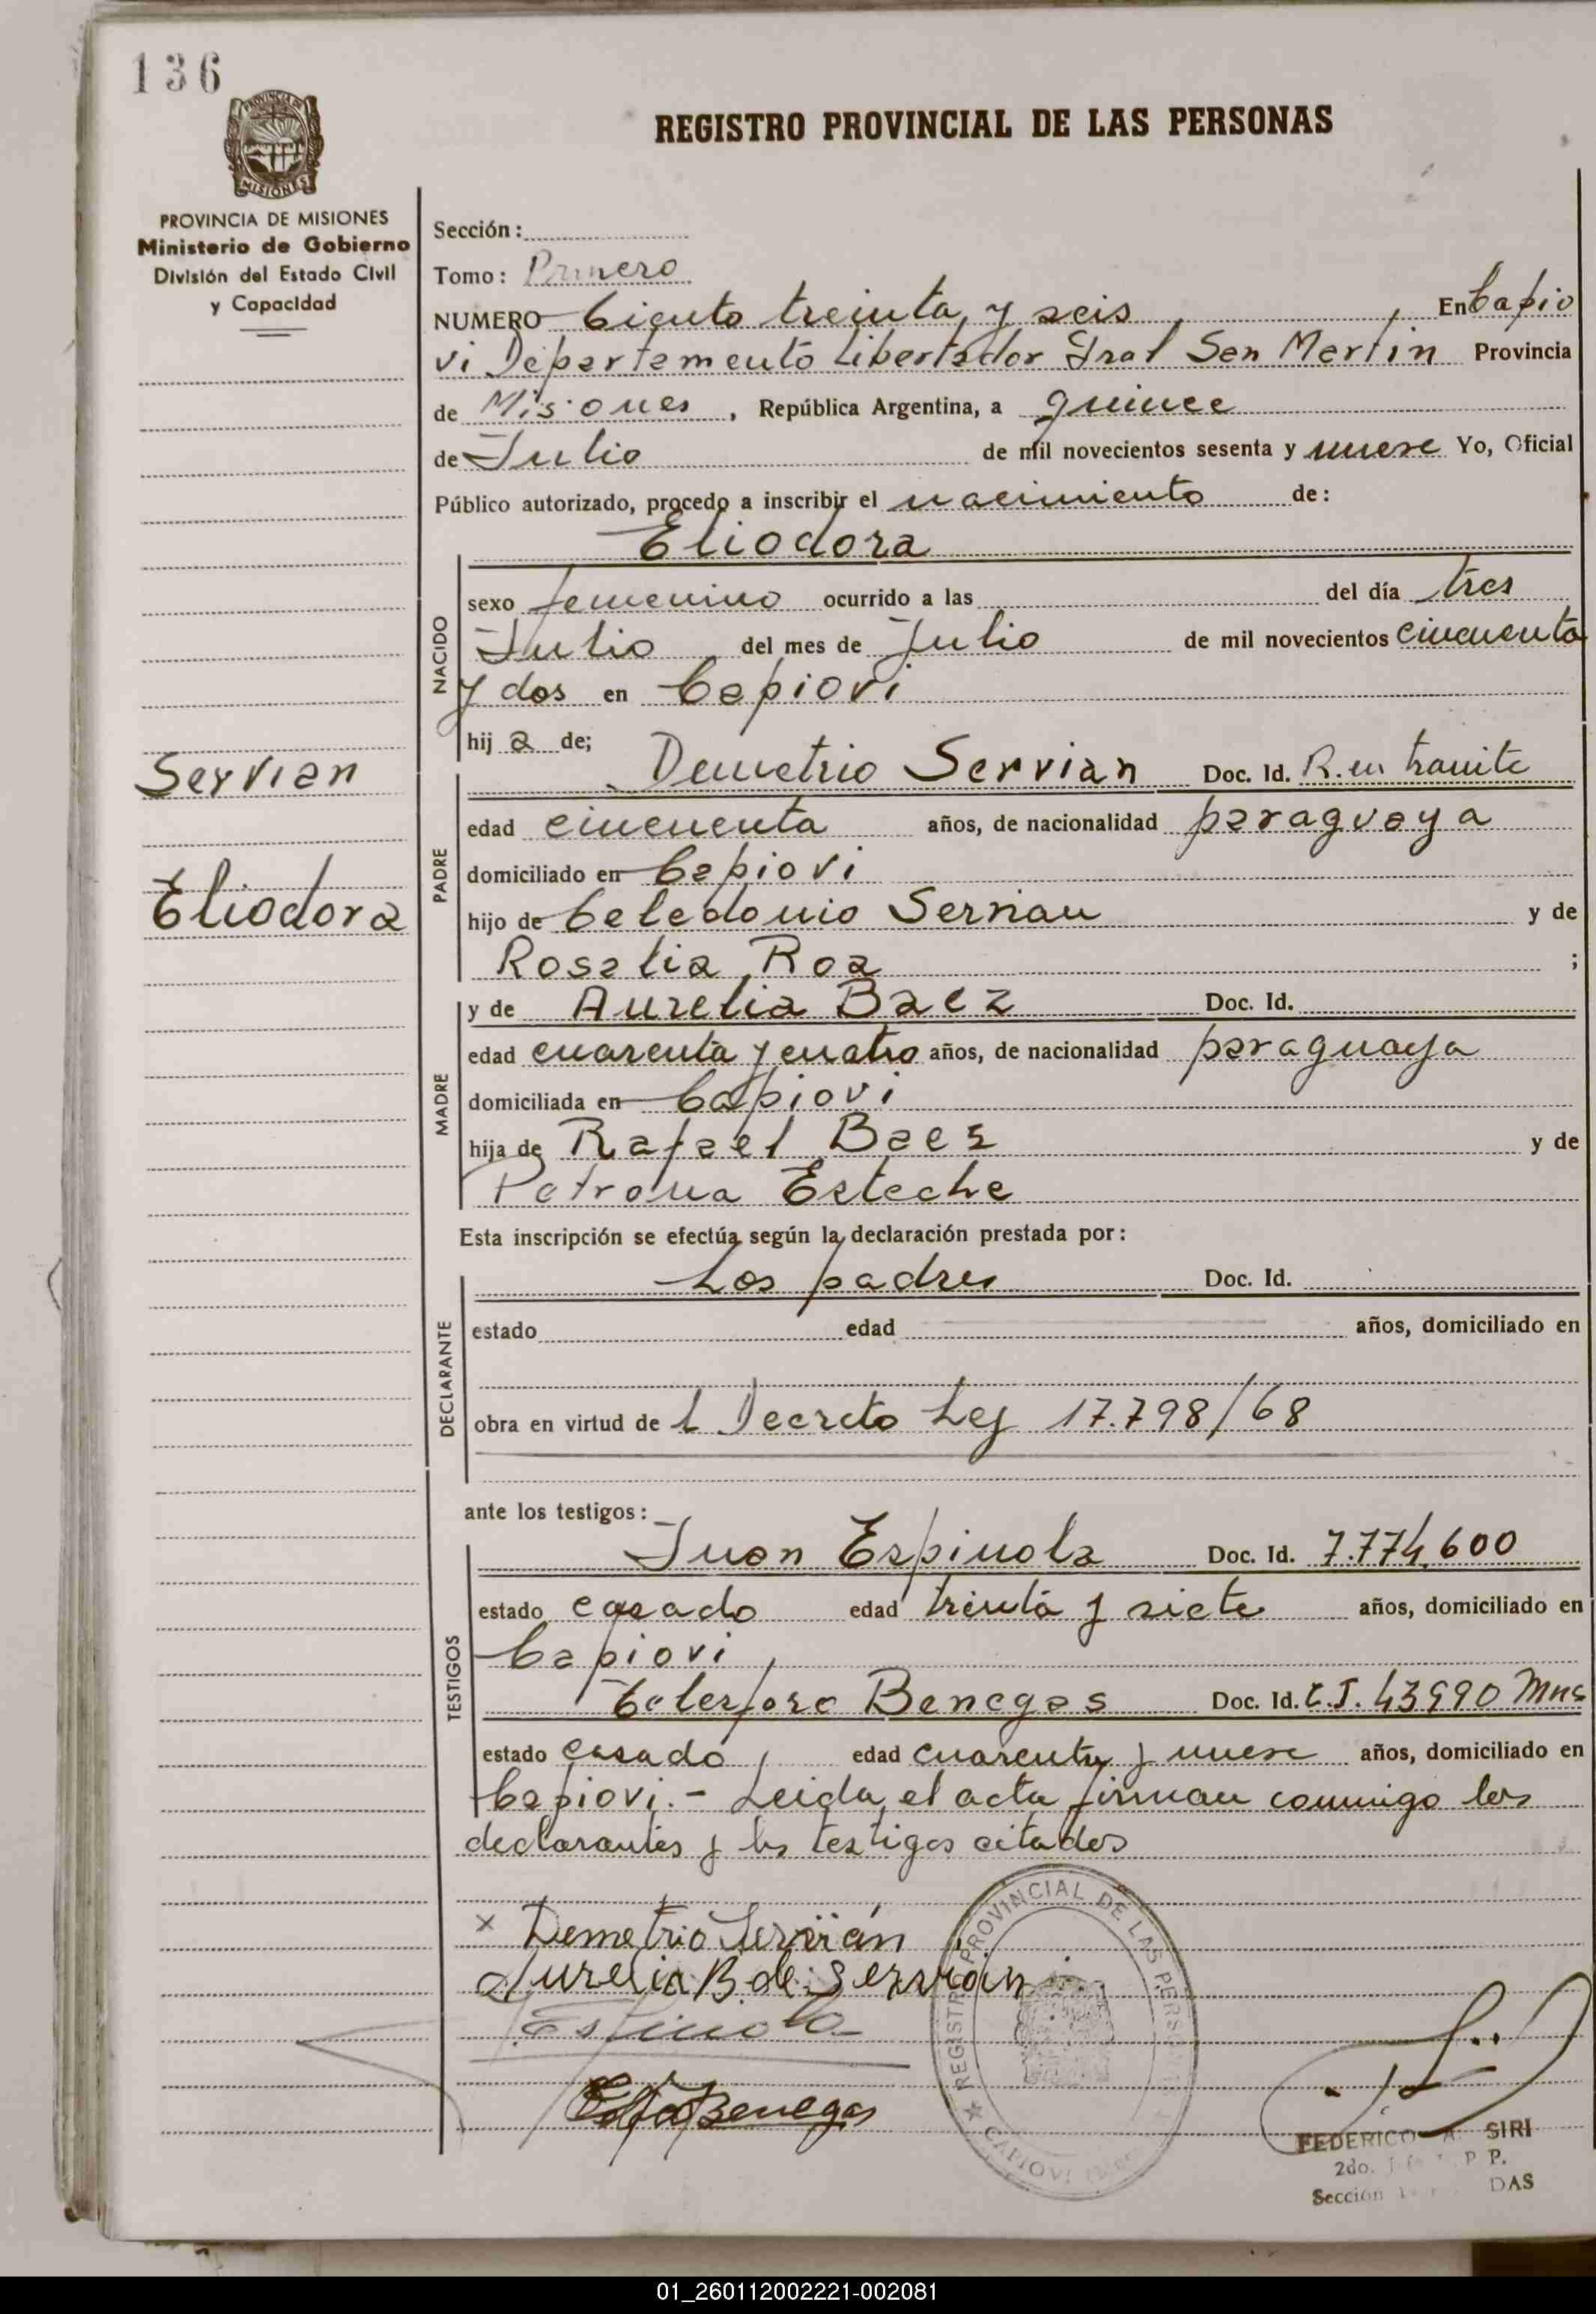 136
PROVINCIA DE MISIONES
Ministerio de Gobierno
División del Estado Civil
y Capacidad
REGISTRO PROVINCIAL DE LAS PERSONAS
Sección:
Tomo: Primero
NUMERO Ciento treinta y seis, En Capio
vi Departamento Libertador Gral San Martin Provincia
de Misiones, República Argentina, a quince
de Julio de mil novecientos sesenta y nueve Yo, Oficial
Público autorizado, procedo a inscribir el nacimiento de:
Eliodora
NACIDO
sexo femenino ocurrido a las del día tres
Julio del mes de Julio de mil novecientos cincuenta
y dos en Capiovi
hij a de;
Servian
Eliodora
PADRE
Demetrio Servian Doc. Id. R. en tramite
edad cincuenta años, de nacionalidad paraguaya
domiciliado en Capiovi
hijo de Celedonio Servian y de
Rosalia Roa ;
MADRE
y de Aurelia Baez Doc. Id.
edad cuarenta y cuatro años, de nacionalidad paraguaya
domiciliada en Capiovi
hija de Rafael Baez y de
Petrona Esteche
Esta inscripción se efectúa según la declaración prestada por:
DECLARANTE
Los padres Doc. Id.
estado edad años, domiciliado en
obra en virtud de l Decreto Ley 17.798/68
ante los testigos:
TESTIGOS
Juan Espinola Doc. Id. 7.774.600
estado casado edad treinta y siete años, domiciliado en
Capiovi
Benegas Doc. Id. C.I. 43990 Mns
estado casado, edad cuarenta y nueve años, domiciliado en
Capiovi.- Leida el acta firman conmigo los
declarantes y los testigos citados
x Demetrio Servián
Aurelia B. de Servián
Espinola
Benegas
REGISTRO PROVINCIAL DE LAS PERSONAS
CAPIOVI
FEDERICO A. SIRI
2do. P.
Sección DAS
01_260112002221-002081